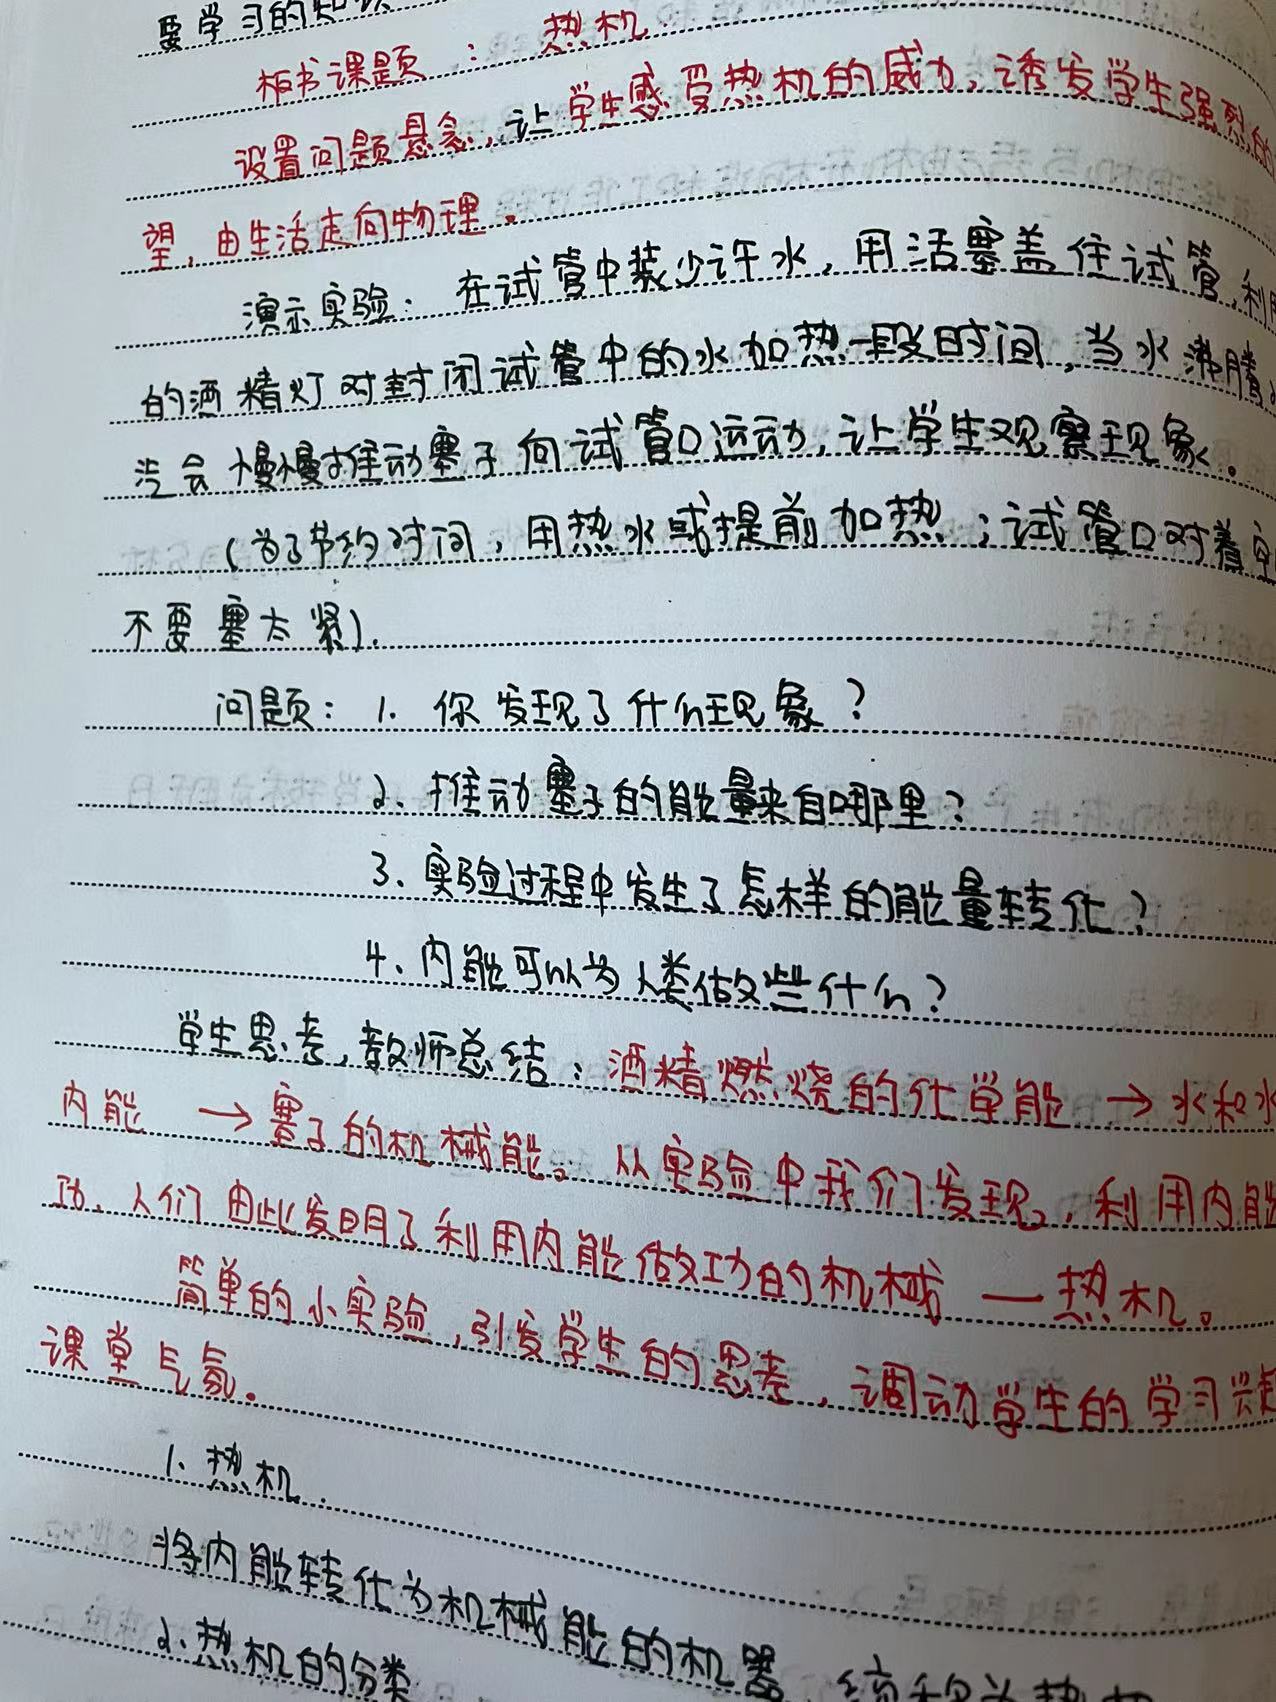 要学习的知识
板书课题：热机
设置问题悬念，让学生感受热机的威力，诱发学生强烈的
望，由生活走向物理。
演示实验：在试管中装少许水，用活塞盖住试管，利用
的酒精灯对封闭试管中的水加热一段时间，当水沸腾
汽会慢慢推动塞子向试管口运动，让学生观察现象。
（为了节约时间，用热水或提前加热；试管口对着
不要塞太紧）.
问题：1. 你发现了什么现象？
2、推动塞子的能量来自哪里？
3、实验过程中发生了怎样的能量转化？
4、内能可以为人类做些什么？
学生思考，教师总结：酒精燃烧的化学能 → 水和水
内能 → 塞子的机械能。从实验中我们发现，利用内能
功、人们由此发明了利用内能做功的机械 — 热机。
简单的小实验，引发学生的思考，调动学生的学习兴趣
课堂气氛。
1、热机.
将内能转化为机械能的机器
2、热机的分类